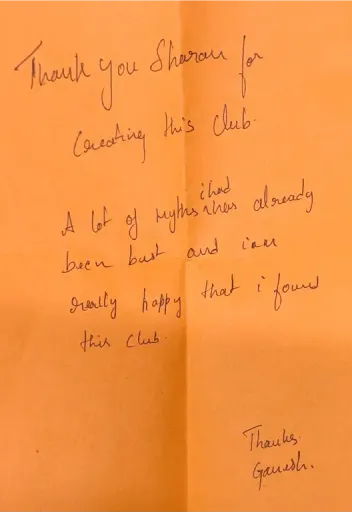 Thank you Sharan for
Creating this Club.
i had
A lot of myths has already
been bust and iam
really happy that i found
this Club.
Thanks
Ganesh.